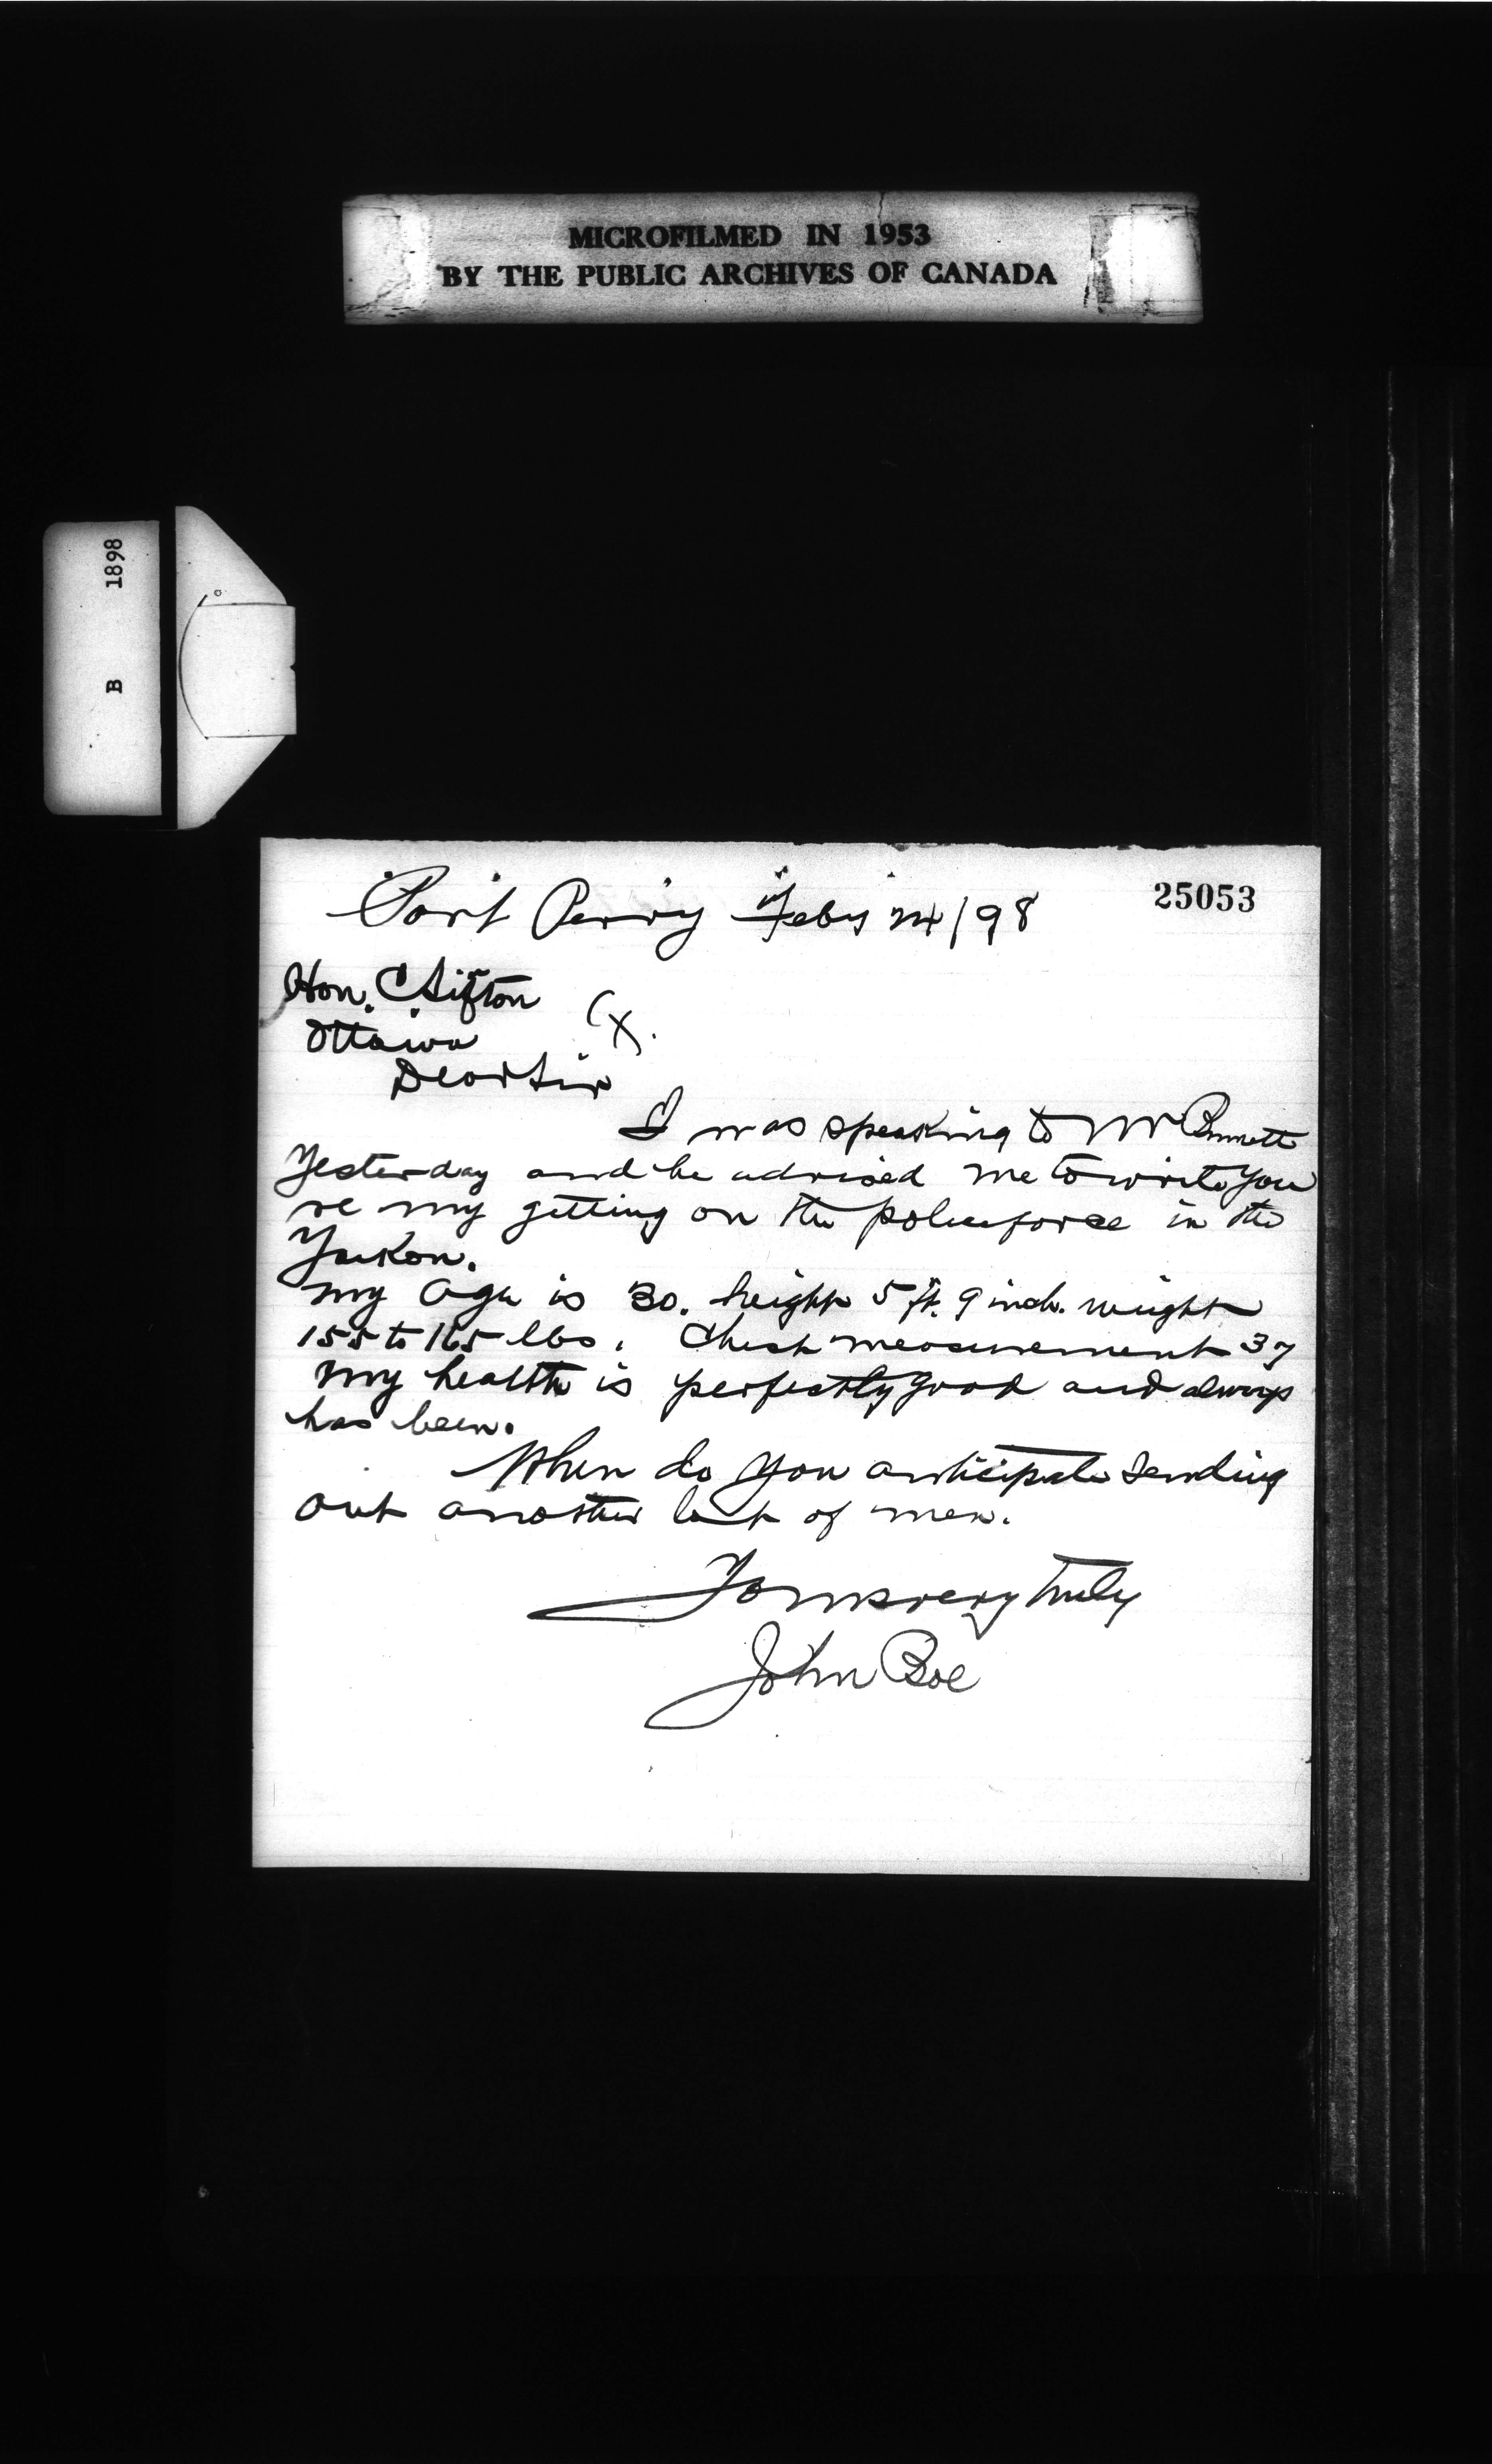 MICROFILMED IN 1953
BY THE PUBLIC ARCHIVES OF CANADA
B 1898
25053
Port Perry Feby 24/98
Hon. C Sifton
Ottawa
Dear Sir
I was speaking to Mr
Yesterday and he advised me to write you
re my getting on the police force in the
Yukon.
my Age is 30. height 5 ft. 9 inch. weight
155 to 165 lbs. Chest measurement 37
My health is perfectly good and always
has been.
When do you anticipate sending
out another lot of men.
Yours very truly
John Boe